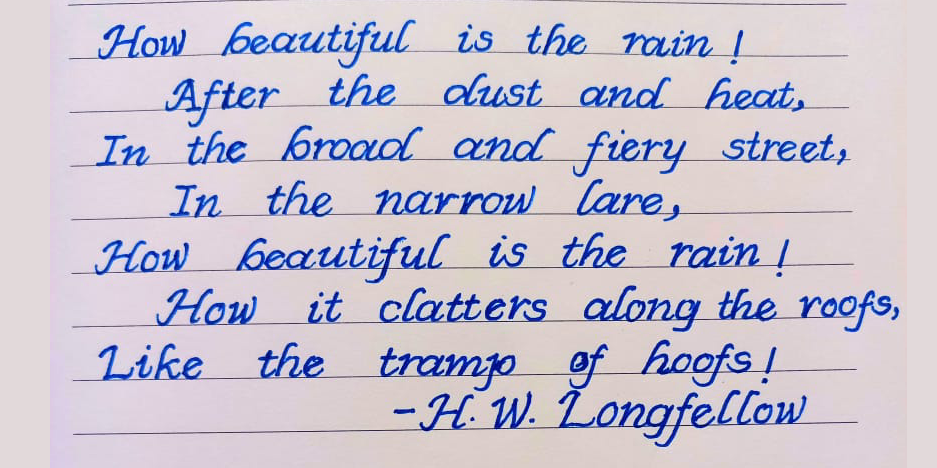 How beautiful is the rain!
After the dust and heat,
In the broad and fiery street,
In the narrow lare,
How beautiful is the rain!
How it clatters along the roofs,
Like the tramp of hoofs!
-H. W. Longfellow